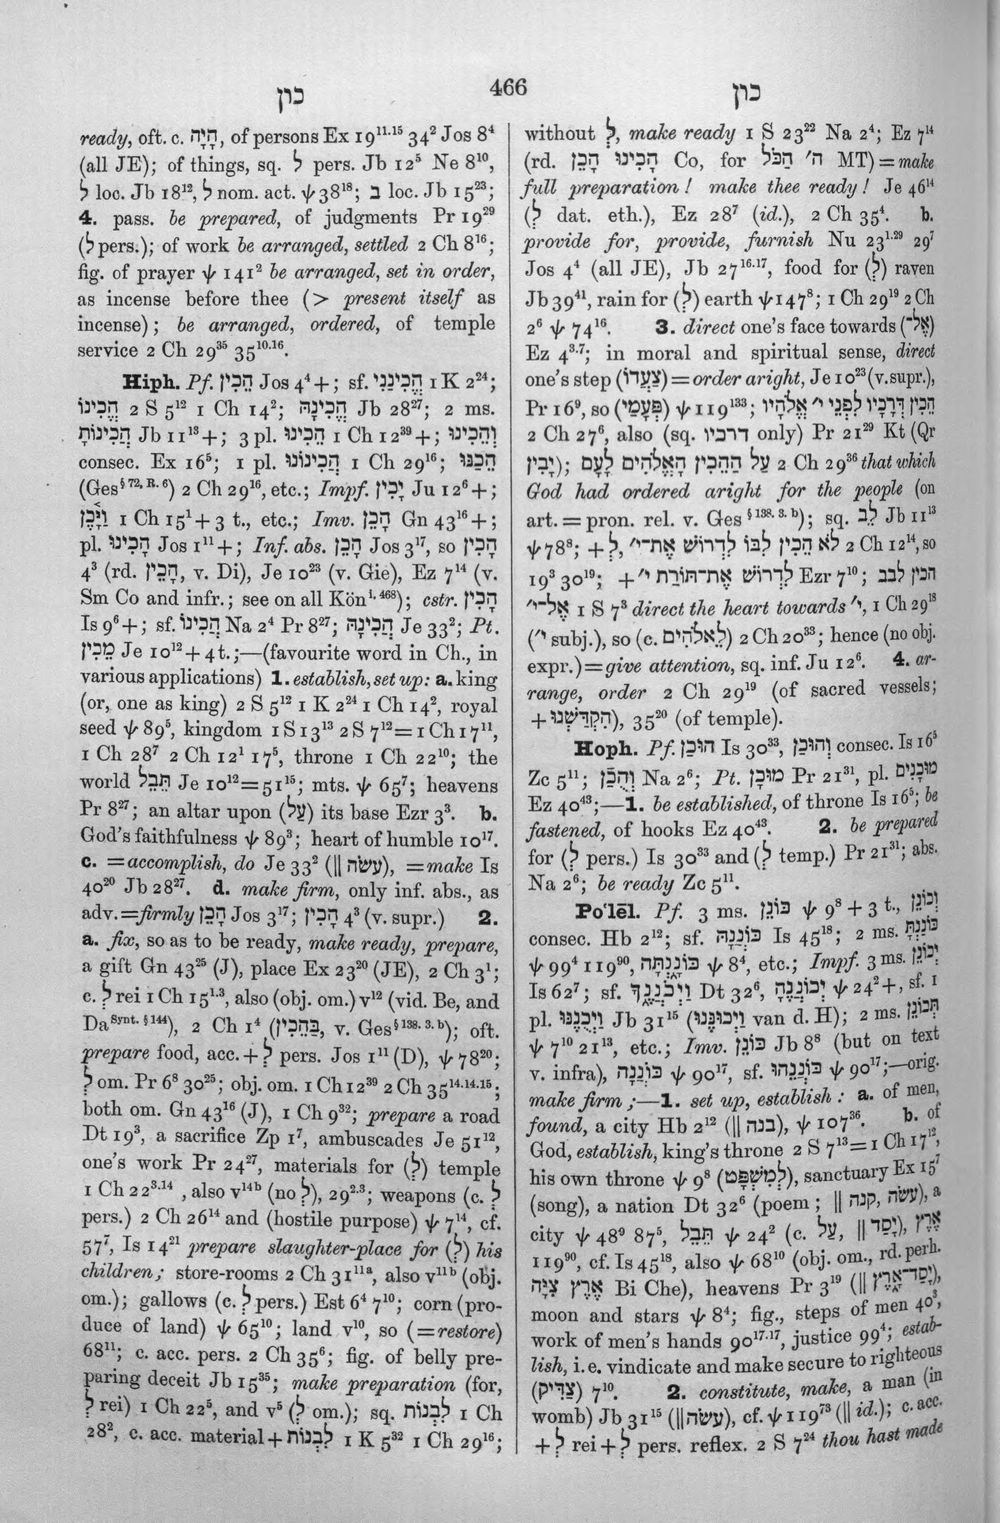 כון
466
כון
ready, oft. c. הָיָה, of persons Ex 19¹¹·¹⁵ 34² Jos 8⁴
(all JE); of things, sq. לְ pers. Jb 12⁵ Ne 8¹⁰,
לְ loc. Jb 18¹², לְ nom. act. ψ 38¹⁸; בְּ loc. Jb 15²³;
4. pass. be prepared, of judgments Pr 19²⁹
(לְ pers.); of work be arranged, settled 2 Ch 8¹⁶;
fig. of prayer ψ 141² be arranged, set in order,
as incense before thee (> present itself as
incense); be arranged, ordered, of temple
service 2 Ch 29³⁵ 35¹⁰·¹⁶.
Hiph. Pf. הֵכִין Jos 4⁴ +; sf. הֱכִינַנִי 1 K 2²⁴;
הֱכִינוֹ 2 S 5¹² 1 Ch 14²; הֱכִינָהּ Jb 28²⁷; 2 ms.
הֲכִינוֹתָ Jb 11¹³ +; 3 pl. הֵכִינוּ 1 Ch 12³⁹ +; וְהֵכִינוּ
consec. Ex 16⁵; 1 pl. הֲכִינוֹנוּ 1 Ch 29¹⁶; הֵכַנּוּ
(Ges§ 72, R. 6) 2 Ch 29¹⁶, etc.; Impf. יָכִין Ju 12⁶ +;
וַיָּכֶן 1 Ch 15¹ + 3 t., etc.; Imv. הָכֵן Gn 43¹⁶ +;
pl. הָכִינוּ Jos 1¹¹ +; Inf. abs. הָכֵן Jos 3¹⁷, so הָכִין
4³ (rd. הָכִין, v. Di), Je 10²³ (v. Gie), Ez 7¹⁴ (v.
Sm Co and infr.; see on all Kön¹·⁴⁶⁸); cstr. הָכִין
Is 9⁶ +; sf. הֲכִינוֹ Na 2⁴ Pr 8²⁷; הֲכִינָהּ Je 33²; Pt.
מֵכִין Je 10¹² + 4 t.;—(favourite word in Ch., in
various applications) 1. establish, set up: a. king
(or, one as king) 2 S 5¹² 1 K 2²⁴ 1 Ch 14², royal
seed ψ 89⁵, kingdom 1 S 13¹³ 2 S 7¹² = 1 Ch 17¹¹,
1 Ch 28⁷ 2 Ch 12¹ 17⁵, throne 1 Ch 22¹⁰; the
world תֵּבֵל Je 10¹² = 51¹⁵; mts. ψ 65⁷; heavens
Pr 8²⁷; an altar upon (עַל) its base Ezr 3³. b.
God's faithfulness ψ 89³; heart of humble 10¹⁷.
c. = accomplish, do Je 33² (‖ עשׂה), = make Is
40²⁰ Jb 28²⁷. d. make firm, only inf. abs., as
adv. = firmly הָכֵן Jos 3¹⁷; הָכִין 4³ (v. supr.) 2.
a. fix, so as to be ready, make ready, prepare,
a gift Gn 43²⁵ (J), place Ex 23²⁰ (JE), 2 Ch 3¹;
c. לְ rei 1 Ch 15¹·³, also (obj. om.) v¹² (vid. Be, and
Da Synt. § 144), 2 Ch 1⁴ (בַּהֵכִין, v. Ges§ 138. 3. b); oft.
prepare food, acc. + לְ pers. Jos 1¹¹ (D), ψ 78²⁰;
לְ om. Pr 6⁸ 30²⁵; obj. om. 1 Ch 12³⁹ 2 Ch 35¹⁴·¹⁴·¹⁵;
both om. Gn 43¹⁶ (J), 1 Ch 9³²; prepare a road
Dt 19³, a sacrifice Zp 1⁷, ambuscades Je 51¹²,
one's work Pr 24²⁷, materials for (לְ) temple
1 Ch 22³·¹⁴ , also v¹⁴ᵇ (no לְ), 29²·³; weapons (c. לְ
pers.) 2 Ch 26¹⁴ and (hostile purpose) ψ 7¹⁴, cf.
57⁷, Is 14²¹ prepare slaughter-place for (לְ) his
children; store-rooms 2 Ch 31¹¹ᵃ, also v¹¹ᵇ (obj.
om.); gallows (c. לְ pers.) Est 6⁴ 7¹⁰; corn (pro-
duce of land) ψ 65¹⁰; land v¹⁰, so (= restore)
68¹¹; c. acc. pers. 2 Ch 35⁶; fig. of belly pre-
paring deceit Jb 15³⁵; make preparation (for,
לְ rei) 1 Ch 22⁵, and v⁵ (לְ om.); sq. לִבְנוֹת 1 Ch
28², c. acc. material + לִבְנוֹת 1 K 5³² 1 Ch 29¹⁶;
without לְ, make ready 1 S 23²² Na 2⁴; Ez 7¹⁴
(rd. הָכִינוּ הָכֵן Co, for הַכֹּל 'ה MT) = make
full preparation! make thee ready! Je 46¹⁴
(לְ dat. eth.), Ez 28⁷ (id.), 2 Ch 35⁴. b.
provide for, provide, furnish Nu 23¹·²⁹ 29⁷
Jos 4⁴ (all JE), Jb 27¹⁶·¹⁷, food for (לְ) raven
Jb 39⁴¹, rain for (לְ) earth ψ 147⁸; 1 Ch 29¹⁹ 2 Ch
2⁶ ψ 74¹⁶. 3. direct one's face towards (אֶל־)
Ez 4³·⁷; in moral and spiritual sense, direct
one's step (צַעֲדוֹ) = order aright, Je 10²³ (v. supr.),
Pr 16⁹, so (פְּעָמַי) ψ 119¹³³; הֵכִין דְּרָכָיו לִפְנֵי י' אֱלֹהָיו
2 Ch 27⁶, also (sq. דרכיו only) Pr 21²⁹ Kt (Qr
יָבִין); עַל הַהֵכִין הָאֱלֹהִים לָעָם 2 Ch 29³⁶ that which
God had ordered aright for the people (on
art. = pron. rel. v. Ges § 138. 3. b); sq. לֵב Jb 11¹³
ψ 78⁸; + לְ, לֹא הֵכִין לִבּוֹ לִדְרוֹשׁ אֶת־י' 2 Ch 12¹⁴, so
19³ 30¹⁹; + לִדְרוֹשׁ אֶת־תּוֹרַת י' Ezr 7¹⁰; הכין לבב
אֶל־י' 1 S 7³ direct the heart towards י', 1 Ch 29¹⁸
(י' subj.), so (c. לֵאלֹהִים) 2 Ch 20³³; hence (no obj.
expr.) = give attention, sq. inf. Ju 12⁶. 4. ar-
range, order 2 Ch 29¹⁹ (of sacred vessels;
+ הִקְדַּשְׁנוּ), 35²⁰ (of temple).
Hoph. Pf. הוּכַן Is 30³³, וְהוּכַן consec. Is 16⁵
Zc 5¹¹; וְהֻכַן Na 2⁶; Pt. מוּכָן Pr 21³¹, pl. מוּכָנִים
Ez 40⁴³;—1. be established, of throne Is 16⁵; be
fastened, of hooks Ez 40⁴³. 2. be prepared
for (לְ pers.) Is 30³³ and (לְ temp.) Pr 21³¹; abs.
Na 2⁶; be ready Zc 5¹¹.
Po'lēl. Pf. 3 ms. כּוֹנֵן ψ 9⁸ + 3 t., וְכוֹנֵן
consec. Hb 2¹²; sf. כּוֹנְנָהּ Is 45¹⁸; 2 ms. כּוֹנַנְתָּ
ψ 99⁴ 119⁹⁰, כּוֹנָנְתָּה ψ 8⁴, etc.; Impf. 3 ms. יְכוֹנֵן
Is 62⁷; sf. וַיְכֹנְנֶךָ Dt 32⁶, יְכוֹנְנֶהָ ψ 24² +, sf. 1
pl. וַיְכֻנֶנּוּ Jb 31¹⁵ (וַיְכוּנֶנּוּ van d. H); 2 ms. תְּכוֹנֵן
ψ 7¹⁰ 21¹³, etc.; Imv. כּוֹנֵן Jb 8⁸ (but on text
v. infra), כּוֹנְנָה ψ 90¹⁷, sf. כּוֹנְנֵהוּ ψ 90¹⁷;—orig.
make firm;—1. set up, establish: a. of men,
found, a city Hb 2¹² (‖ בנה), ψ 107³⁶. b. of
God, establish, king's throne 2 S 7¹³ = 1 Ch 17¹²,
his own throne ψ 9⁸ (לַמִּשְׁפָּט), sanctuary Ex 15⁷
(song), a nation Dt 32⁶ (poem; ‖ עשׂה, קנה), a
city ψ 48⁹ 87⁵, תֵּבֵל ψ 24² (c. עַל, ‖ יָסַד), אֶרֶץ
119⁹⁰, cf. Is 45¹⁸, also ψ 68¹⁰ (obj. om., rd. perh.
אֶרֶץ צִיָּה Bi Che), heavens Pr 3¹⁹ (‖ יָסַד־אֶרֶץ),
moon and stars ψ 8⁴; fig., steps of men 40³,
work of men's hands 90¹⁷·¹⁷, justice 99⁴; estab-
lish, i.e. vindicate and make secure to righteous
(צַדִּיק) 7¹⁰. 2. constitute, make, a man (in
womb) Jb 31¹⁵ (‖ עשׂה), cf. ψ 119⁷³ (‖ id.); c. acc.
+ לְ rei + לְ pers. reflex. 2 S 7²⁴ thou hast made